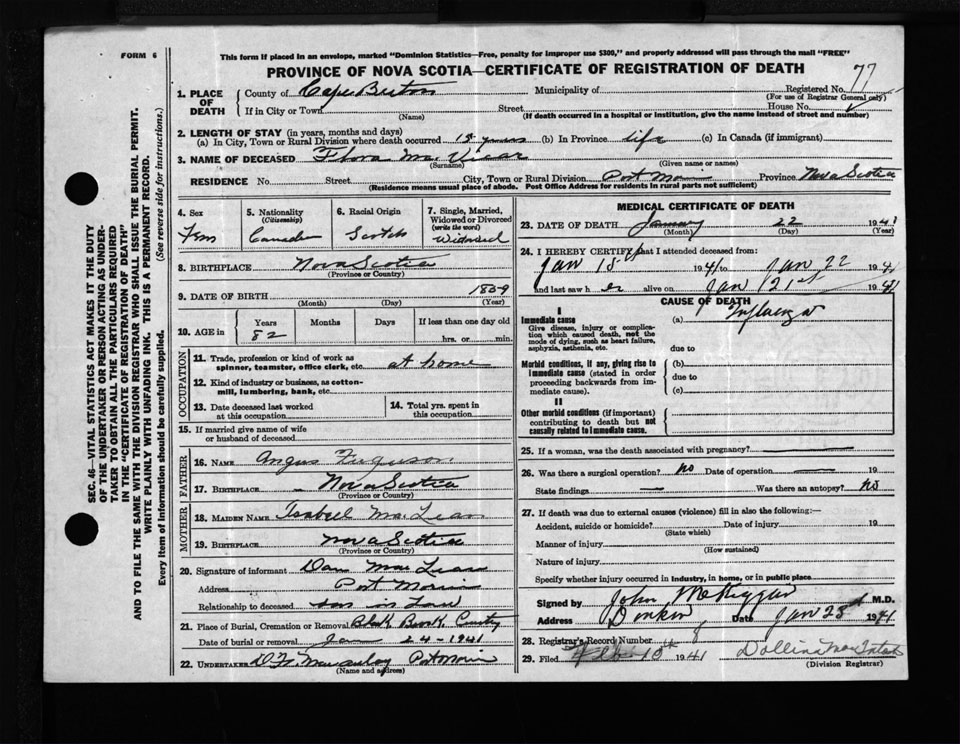 FORM 6
This form if placed in an envelope, marked "Dominion Statistics—Free, penalty for improper use $300," and properly addressed will pass through the mail "FREE"
PROVINCE OF NOVA SCOTIA—CERTIFICATE OF REGISTRATION OF DEATH
1. PLACE OF DEATH
County of Cape Breton Municipality of Registered No. 77
(For use of Registrar General only)
If in City or Town Street House No.
(Name) (If death occurred in a hospital or institution, give the name instead of street and number)
2. LENGTH OF STAY (in years, months and days)
(a) In City, Town or Rural Division where death occurred 15 years (b) In Province life (c) In Canada (if immigrant)
3. NAME OF DECEASED Flora MacVicar
(Surname) (Given name or names)
RESIDENCE No. Street City, Town or Rural Division Port Morien Province Nova Scotia
(Residence means usual place of abode. Post Office Address for residents in rural parts not sufficient)
4. Sex Fem
5. Nationality (Citizenship) Canadian
6. Racial Origin Scotch
7. Single, Married, Widowed or Divorced (write the word) Widowed
8. BIRTHPLACE Nova Scotia
(Province or Country)
9. DATE OF BIRTH 1859
(Month) (Day) (Year)
10. AGE in Years Months Days If less than one day old
82 hrs. or min.
OCCUPATION
11. Trade, profession or kind of work as spinner, teamster, office clerk, etc. at home
12. Kind of industry or business, as cotton-mill, lumbering, bank, etc.
13. Date deceased last worked at this occupation
14. Total yrs. spent in this occupation
15. If married give name of wife or husband of deceased
FATHER
16. NAME Angus Ferguson
17. BIRTHPLACE Nova Scotia
(Province or Country)
MOTHER
18. MAIDEN NAME Isabell MacLean
19. BIRTHPLACE Nova Scotia
(Province or Country)
20. Signature of informant Dan MacLean
Address Port Morien
Relationship to deceased son in Law
21. Place of Burial, Cremation or Removal Black Brook Cemetry
Date of burial or removal Jan 24-1941
22. UNDERTAKER Macaulay Port Morien
(Name and address)
MEDICAL CERTIFICATE OF DEATH
23. DATE OF DEATH January 22 1941
(Month) (Day) (Year)
24. I HEREBY CERTIFY that I attended deceased from:
Jan 15th 1941 to Jan 22 1941
and last saw her alive on Jan 21st 1941
CAUSE OF DEATH
I
Immediate cause (a) Influenza
Give disease, injury or complication which caused death, not the mode of dying, such as heart failure, asphyxia, asthenia, etc.
due to
Morbid conditions, if any, giving rise to immediate cause (stated in order proceeding backwards from immediate cause).
(b)
due to
(c)
II
Other morbid conditions (if important) contributing to death but not causally related to immediate cause.
25. If a woman, was the death associated with pregnancy?
26. Was there a surgical operation? no Date of operation 19
State findings Was there an autopsy? no
27. If death was due to external causes (violence) fill in also the following:—
Accident, suicide or homicide? Date of injury 19
(State which)
Manner of injury
(How sustained)
Nature of injury
Specify whether injury occurred in industry, in home, or in public place
Signed by John McKiggan M.D.
Address Donkin Date Jan 23d 1941
28. Registrar's Record Number 8
29. Filed Feb 10th 1941 Dollina MacIntosh
(Division Registrar)
SEC. 46—VITAL STATISTICS ACT MAKES IT THE DUTY
OF THE UNDERTAKER OR PERSON ACTING AS UNDER-
TAKER TO OBTAIN ALL THE PARTICULARS REQUIRED
IN THE "CERTIFICATE OF REGISTRATION OF DEATH"
AND TO FILE THE SAME WITH THE DIVISION REGISTRAR WHO SHALL ISSUE THE BURIAL PERMIT.
WRITE PLAINLY WITH UNFADING INK. THIS IS A PERMANENT RECORD.
Every item of information should be carefully supplied. (See reverse side for instructions.)